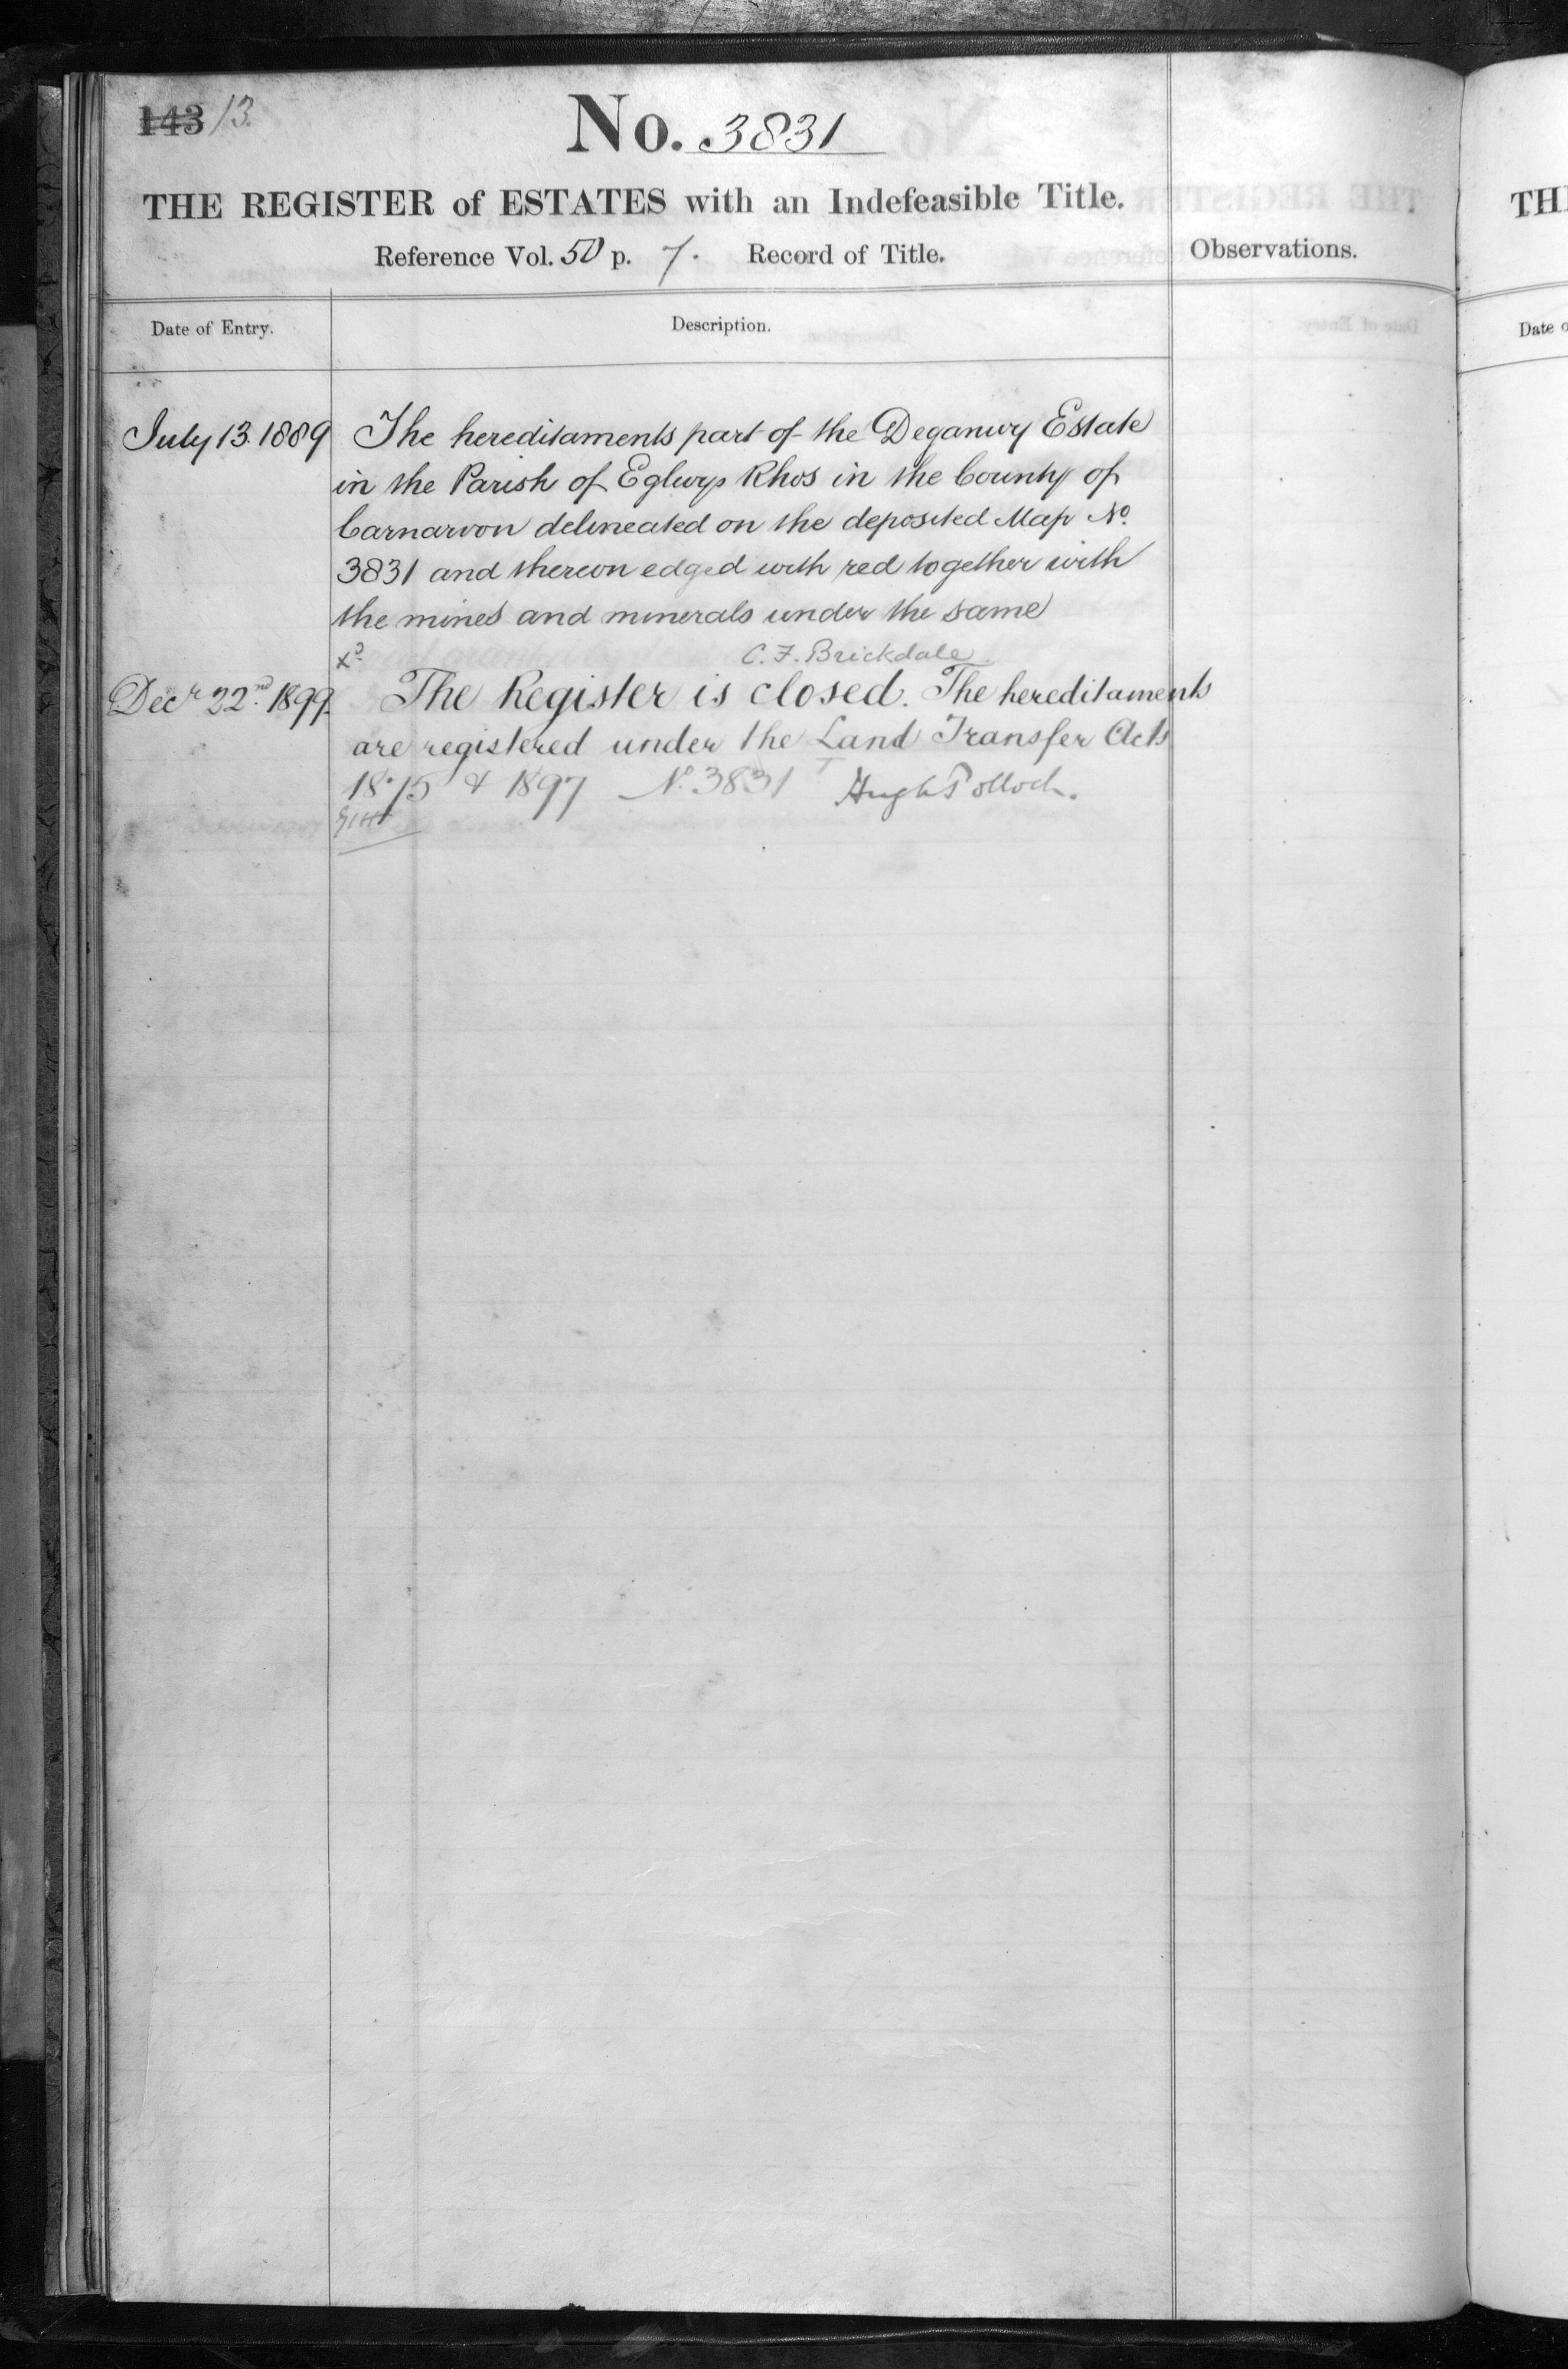 143 13.
No. 3831
THE REGISTER of ESTATES with an Indefeasible Title.
Reference Vol. 50 p. 7. Record of Title.
Observations.
Date of Entry.
Description.
July 13. 1889
The hereditaments part of the Deganwy Estate
in the Parish of Eglwys Rhos in the County of
Carnarvon delineated on the deposited Map No.
3831 and thereon edged with red together with
the mines and minerals under the same
C. F. Brickdale
Decr 22nd 1899.
The Register is closed. The hereditaments
are registered under the Land Transfer Acts
1875 & 1897 No. 3831 Hugh Pollock.
TH
Date o